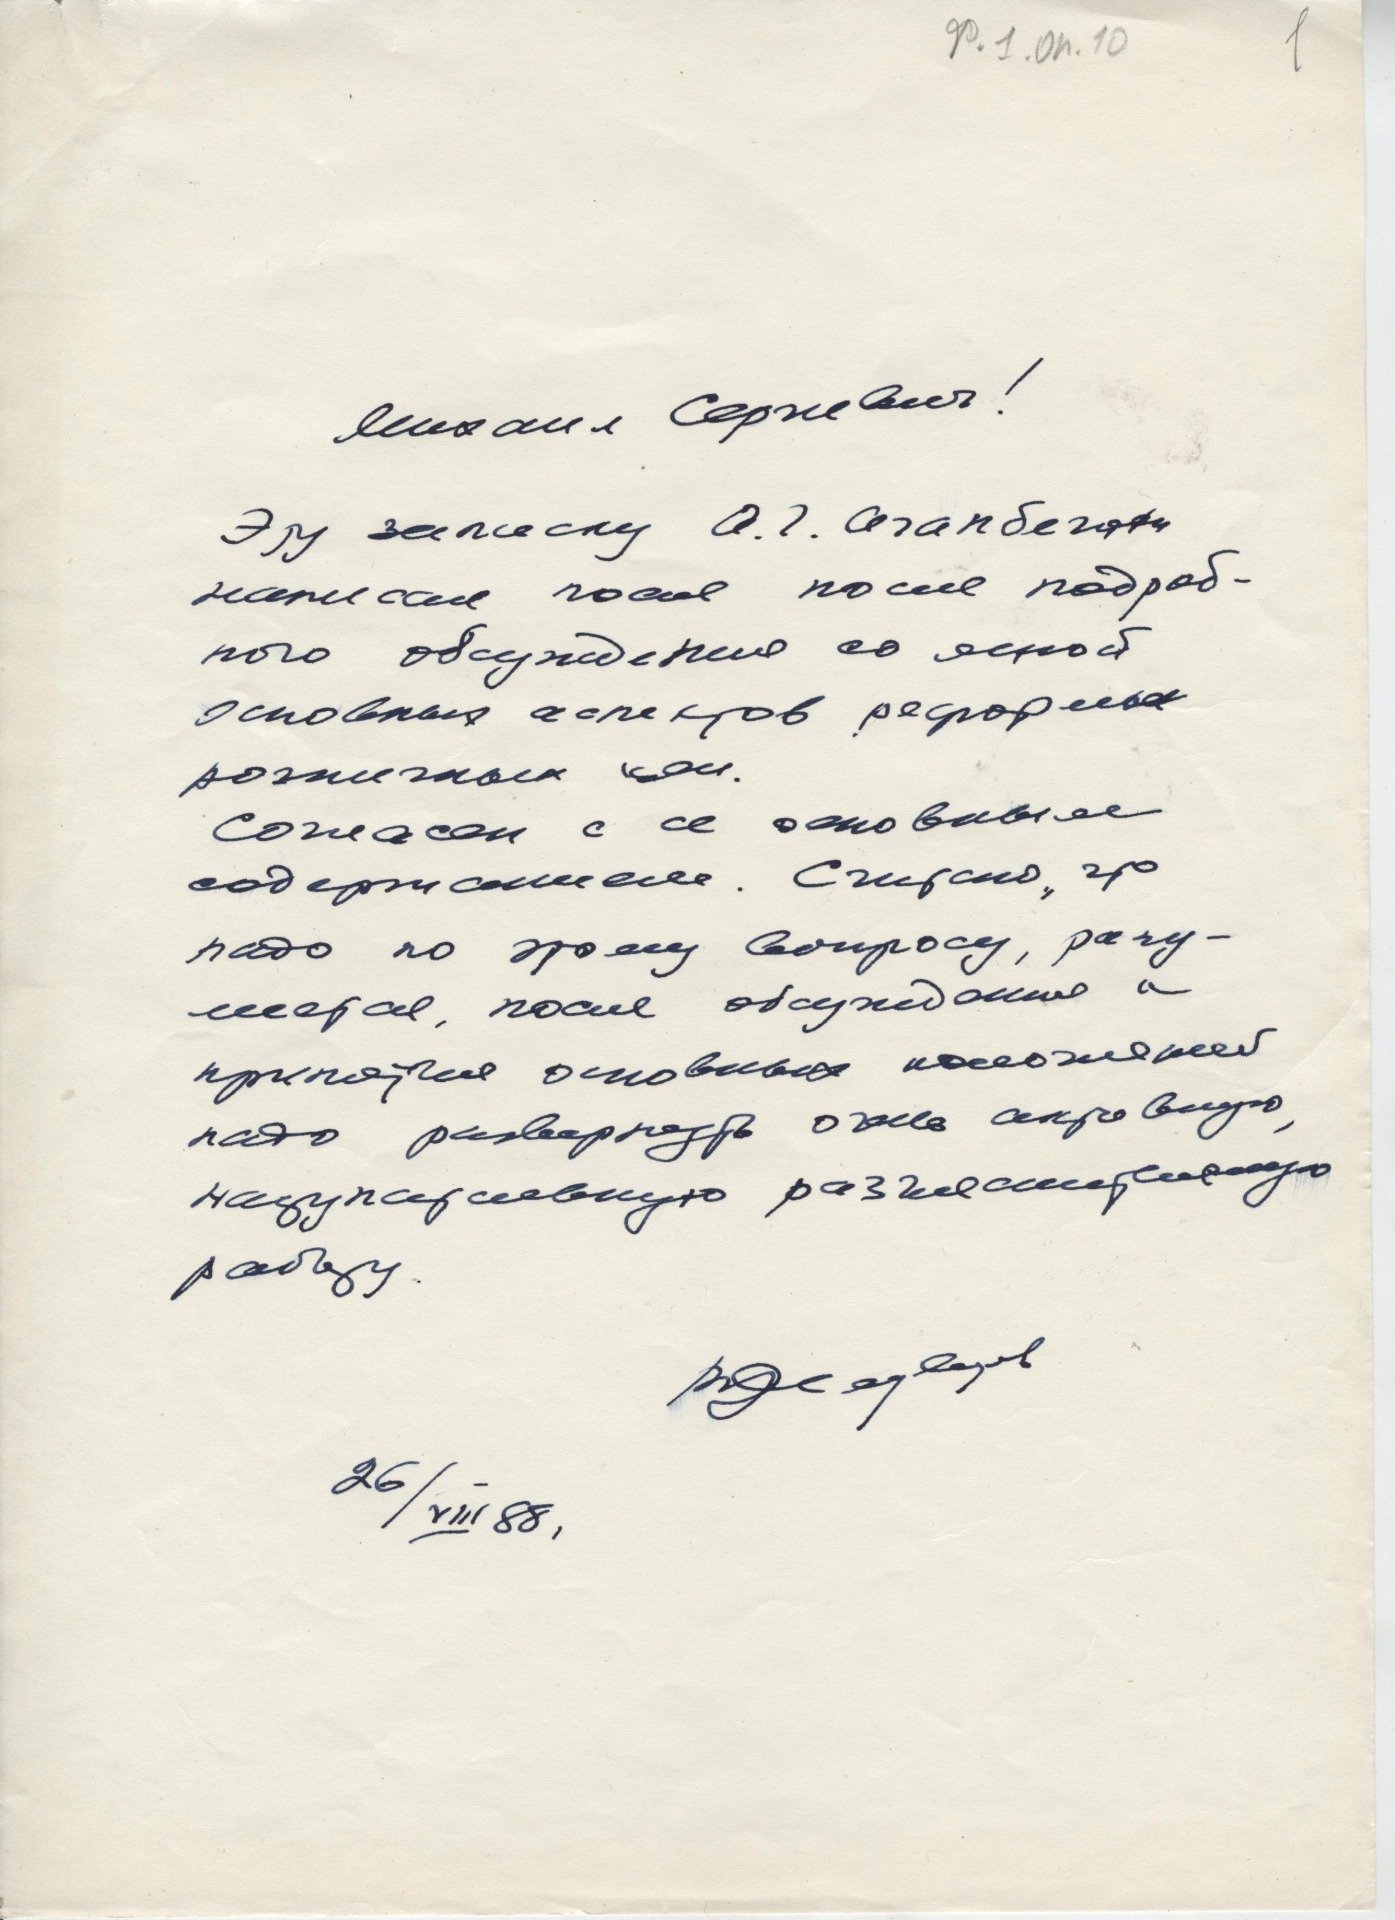 Ф.1.оп.10
Михаил Сергеевич!
Эту записку А.Г. Аганбегян
написал после подроб-
ного обсуждения со мной
основных аспектов реформы
розничных цен.
Согласен с ее основным
содержанием. Считаю, что
надо по этому вопросу, разу-
меется, после обсуждения и
принятия основных положений
надо развернуть очень активную,
наступательную разъяснительную
работу.
В Медведев
26/VIII 88.